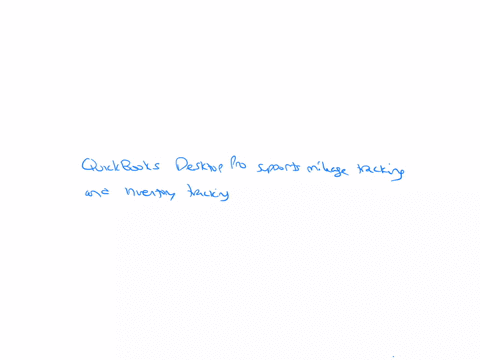 QuickBooks Desktop Pro supports mileage tracking
and inventory tracking